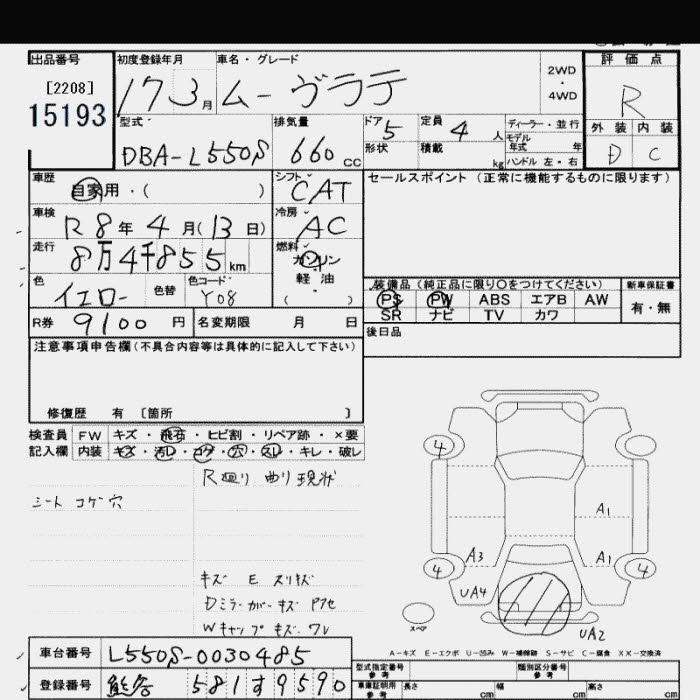 出品番号
[2208]
15193
初度登録年月
17 3 月
車名・グレード
ムーヴラテ
2WD
・
4WD
評価点
R
外装 内装
D C
型式
DBA-L550S
排気量
660 cc
ドア
5
定員
4 人
ディーラー・並行
モデル
年式 年
形状
積載 kg
ハンドル 左・右
車歴
自家用・( )
シフト
CAT
セールスポイント (正常に機能するものに限ります)
車検
R 8 年 4 月 ( 13 日)
冷房
AC
走行
8万4千855 km
燃料
ガソリン
軽油
( )
色
イエロー
色替
色コード
Y08
装備品 (純正品に限り○をつけてください)
新車保証書
PS PW ABS エアB AW
SR ナビ TV カワ
有・無
R券 9100 円
名変期限 月 日
後日品
注意事項申告欄 (不具合内容等は具体的に記入して下さい)
修復歴 有 [箇所 ]
検査員 FW キズ・飛石・ヒビ割・リペア跡・×要
記入欄 内装 キズ・汚レ・コゲ・穴・スレ・キレ・破レ
R廻り 曲り現状
シート コゲ穴
キズ E スリキズ
Dミラーカバーキズ P7セ
Wキャップキズ・ワレ
4
A1
A3
A1
4
4
UA4
UA2
スペア
A-キズ E-エクボ U-凹み W-補修跡 S-サビ C-腐食 XX-交換済
車台番号 L550S-0030485
登録番号 熊谷 581 す 9590
型式指定番号
参考
類別区分番号
参考
車庫証明用
参考
長さ cm
幅 cm
高さ cm